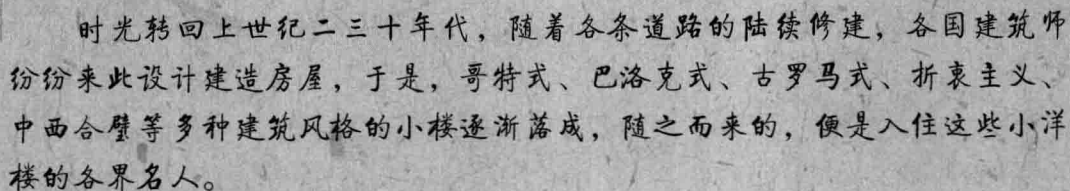 时光转回上世纪二三十年代，随着各条道路的陆续修建，各国建筑师
纷纷来此设计建造房屋，于是，哥特式、巴洛克式、古罗马式、折衷主义、
中西合璧等多种建筑风格的小楼逐渐落成，随之而来的，便是入住这些小洋
楼的各界名人。